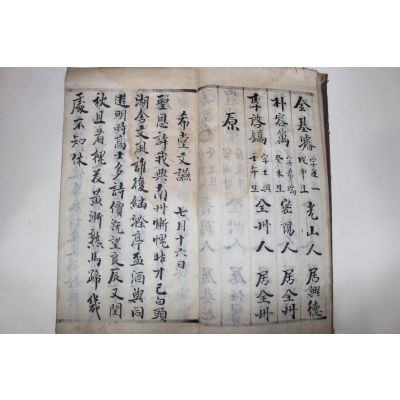 金基濬 戊申生 光山人 居興德
朴容萬 字希瑞 癸未生 密陽人 居全州
李啓鎬 壬午生 全州人 居全州
原
希堂文讌 七月十六日
聖恩許我典南州慚愧才已白頭
湖文風誰復亭盃酒與同
遊明時高士多詩價既望良辰又閏
秋且看槐花黃漸熟馬蹄幾
處不知休